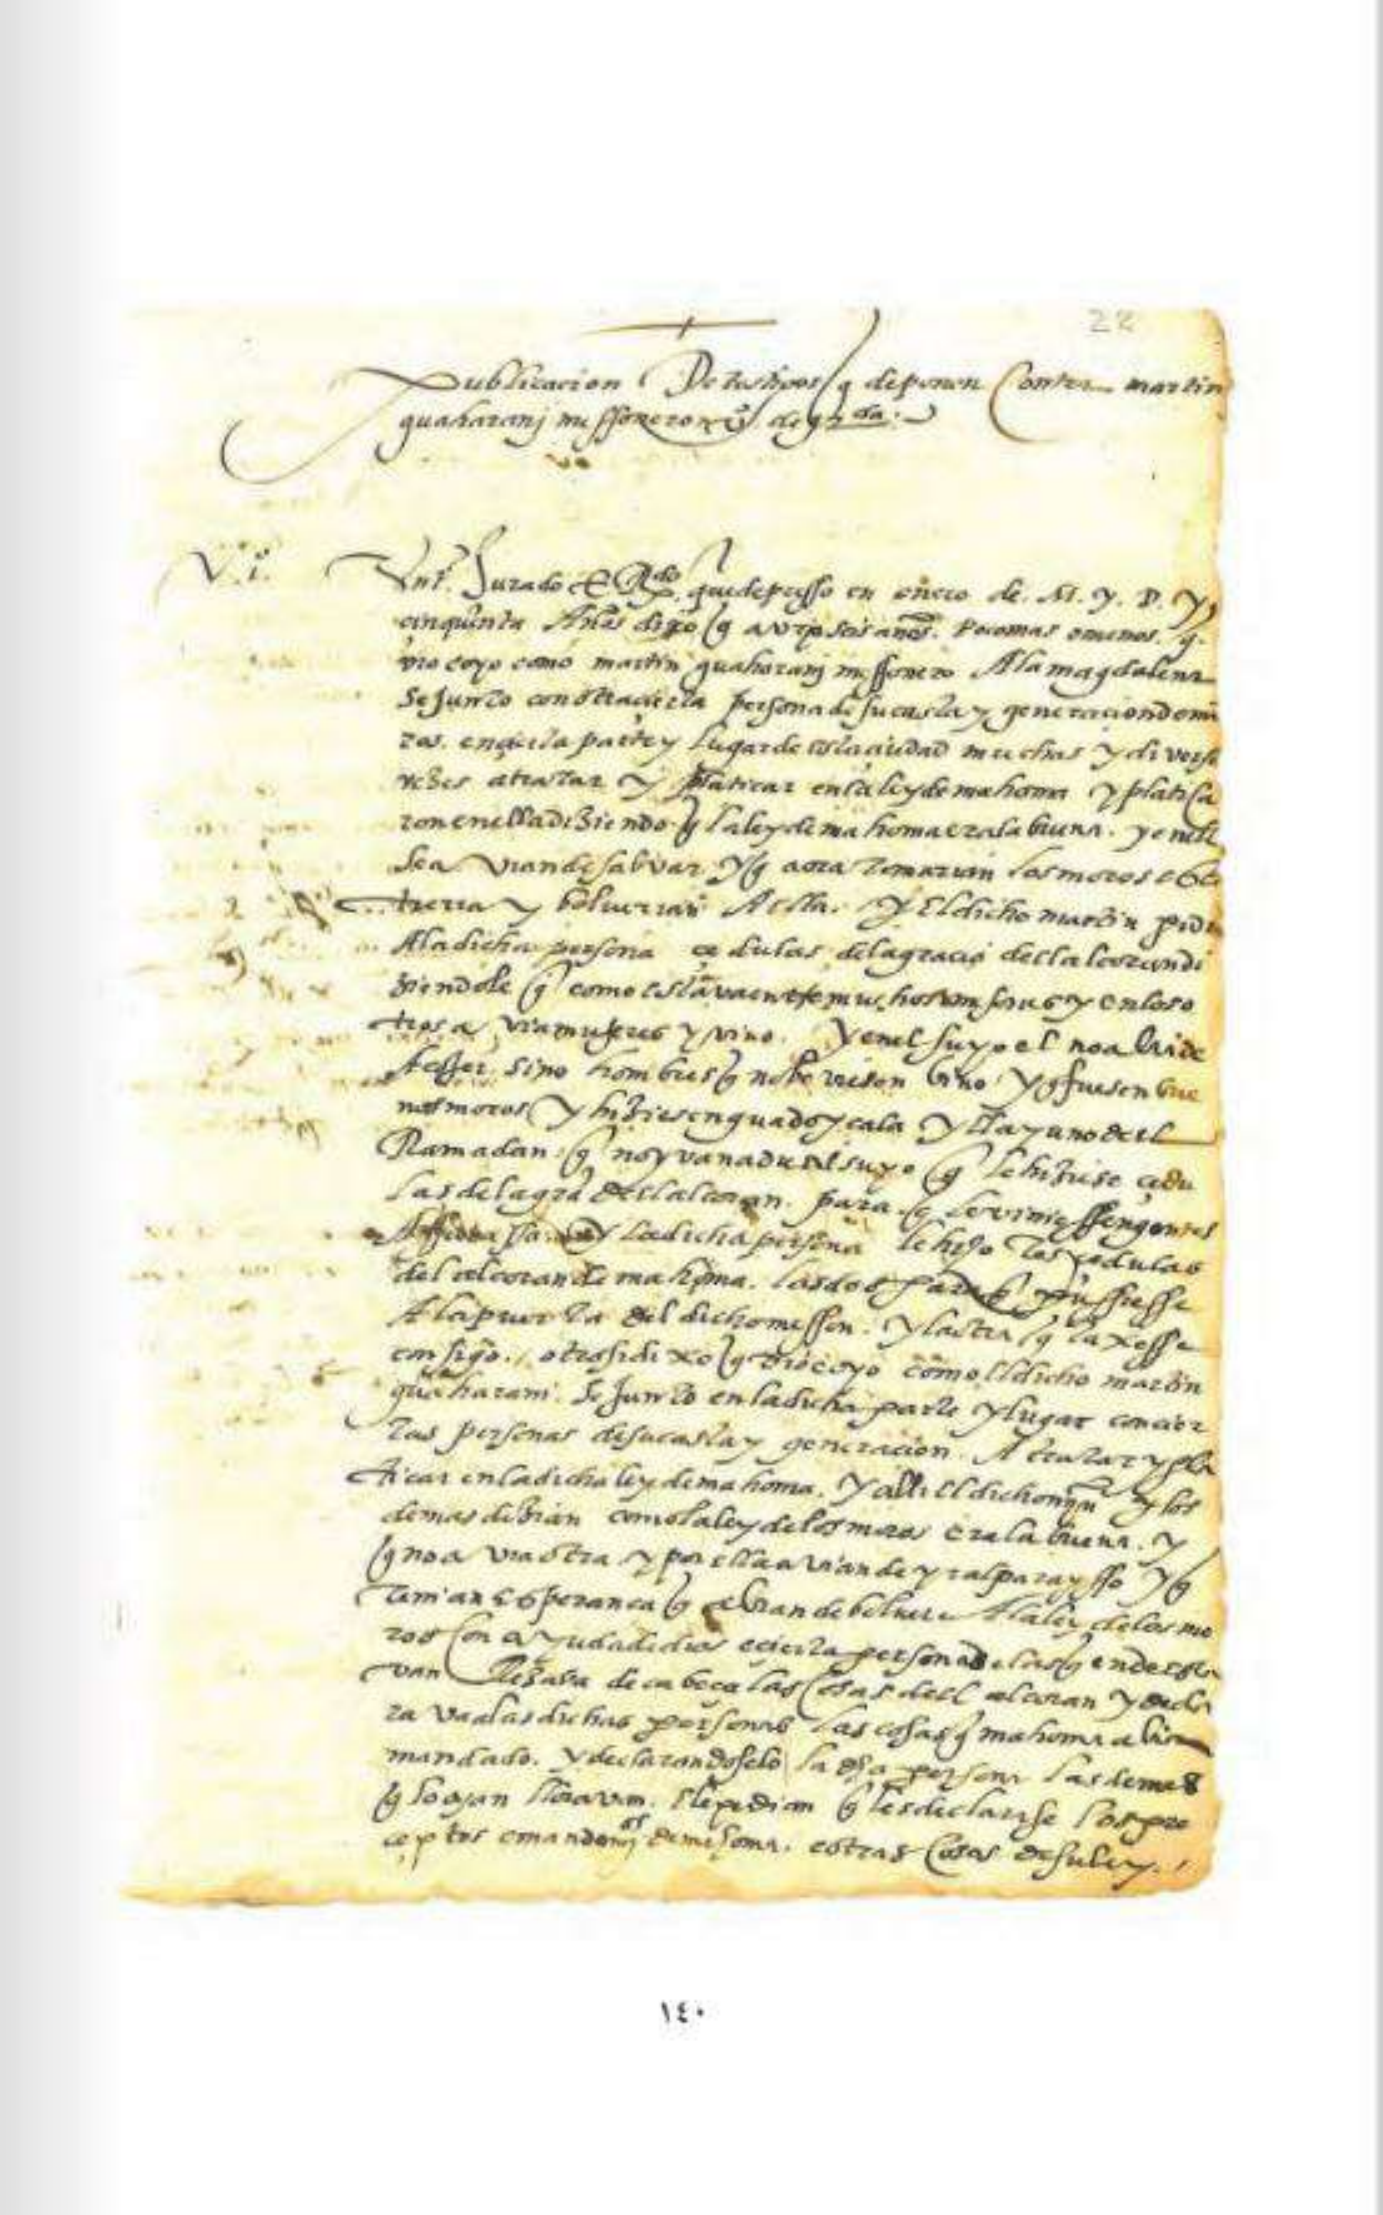 22
Publicacion De testigos q deponen Contra martin
guaharanj messonero vo de grda.
Vo.i.
Un to. Jurado E Rdo. que depusso en enero de. M. y. D. y
cinquenta Años dixo q avra seis anos. poco mas o menos. q.
vio e oyo como martin guaharanj messonero A la magdalena
se junto con otra cierta persona de su casta y generacion de mo
ros. en cierta parte y lugar de esta ciudad muchas y diversas
vezes a tratar y platicar en la ley de mahoma y platica
ron en ella diziendo q la ley de mahoma era la buena. y en ella
se avian de salvar y q aora tomarian los moros esta
tierra y bolverian A ella. y El dicho martin pidio
A la dicha persona cedulas de la gracia del alcoran di
ziendole q como estava entre muchos mesones y en los o
tros avia mugeres y vino. y en el suyo el no avia de
hazer sino hombres q no beviesen vino y q fuesen bue
nos moros y hiziesen guado y cala y el ayuno del
Ramadan q no yvan a du el suyo q le hiziese cedu
las de la gra del alcoran. para q le viniessen gentes
A su cassa. y la dicha persona le hizo tres cedulas
del alcoran de mahoma. las dos para q pussiesse
A la puerta del dicho messon. y la otra q la traxesse
consigo. otrosi dixo q vio e oyo como el dicho martin
guaharani. se junto en la dicha parte y lugar con cier
tas personas de su casta y generacion. A tratar y pla
ticar en la dicha ley de mahoma. y alli el dicho mjn y los
demas dezian como la ley de los moros era la buena. y
q no avia otra y por ella avian de yr al parayso y q
Tenian esperanca q avian de bolver A la ley de los mo
ros con ayuda de dios e cierta persona de las q ende esta
van Rezava de cabeca las Cosas del alcoran y decla
rava a las dichas personas las cosas q mahoma avia
mandado. y declarandoselo la dha persona las demas
q lo oyan lloravan. e le pedian q les declarase los pre
ceptos e mandamjos de mahoma. e otras Cosas de su ley.
١٤٠